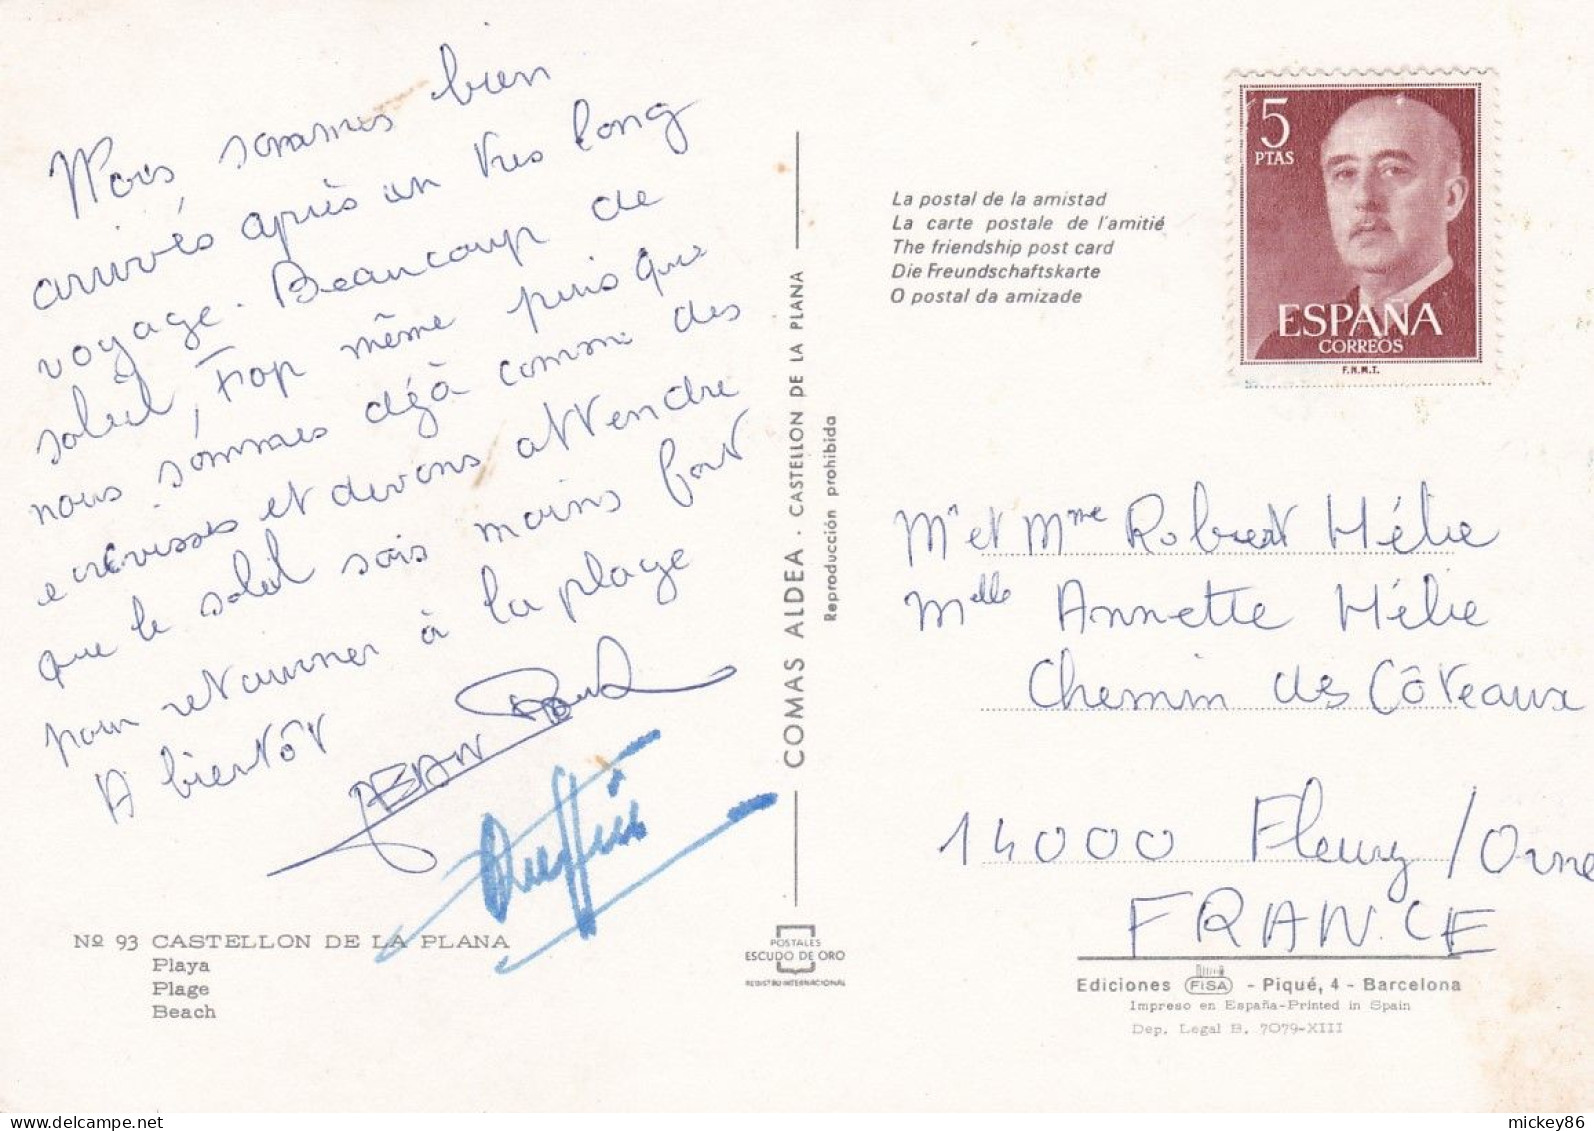 Nous sommes bien
arrivés après un très long
voyage. Beaucoup de
soleil, Trop même puis que
nous sommes déjà comme des
ecrévisses et devons attendre
que le soleil sois moins fort
pour retourner à la plage
A bientôt
JEAN
Nº 93 CASTELLON DE LA PLANA
Playa
Plage
Beach
COMAS ALDEA - CASTELLON DE LA PLANA
Reproducción prohibida
POSTALES
ESCUDO DE ORO
REGISTRO INTERNACIONAL
La postal de la amistad
La carte postale de l'amitié
The friendship post card
Die Freundschaftskarte
O postal da amizade
5
PTAS
ESPAÑA
CORREOS
F.N.M.T.
Mr et Mme Robert Hélie
Melle Annette Hélie
Chemin des Côteaux
14000 Fleury / Orne
FRANCE
Ediciones FISA - Piqué, 4 - Barcelona
Impreso en España-Printed in Spain
Dep. Legal B. 7079-XIII
mickey86